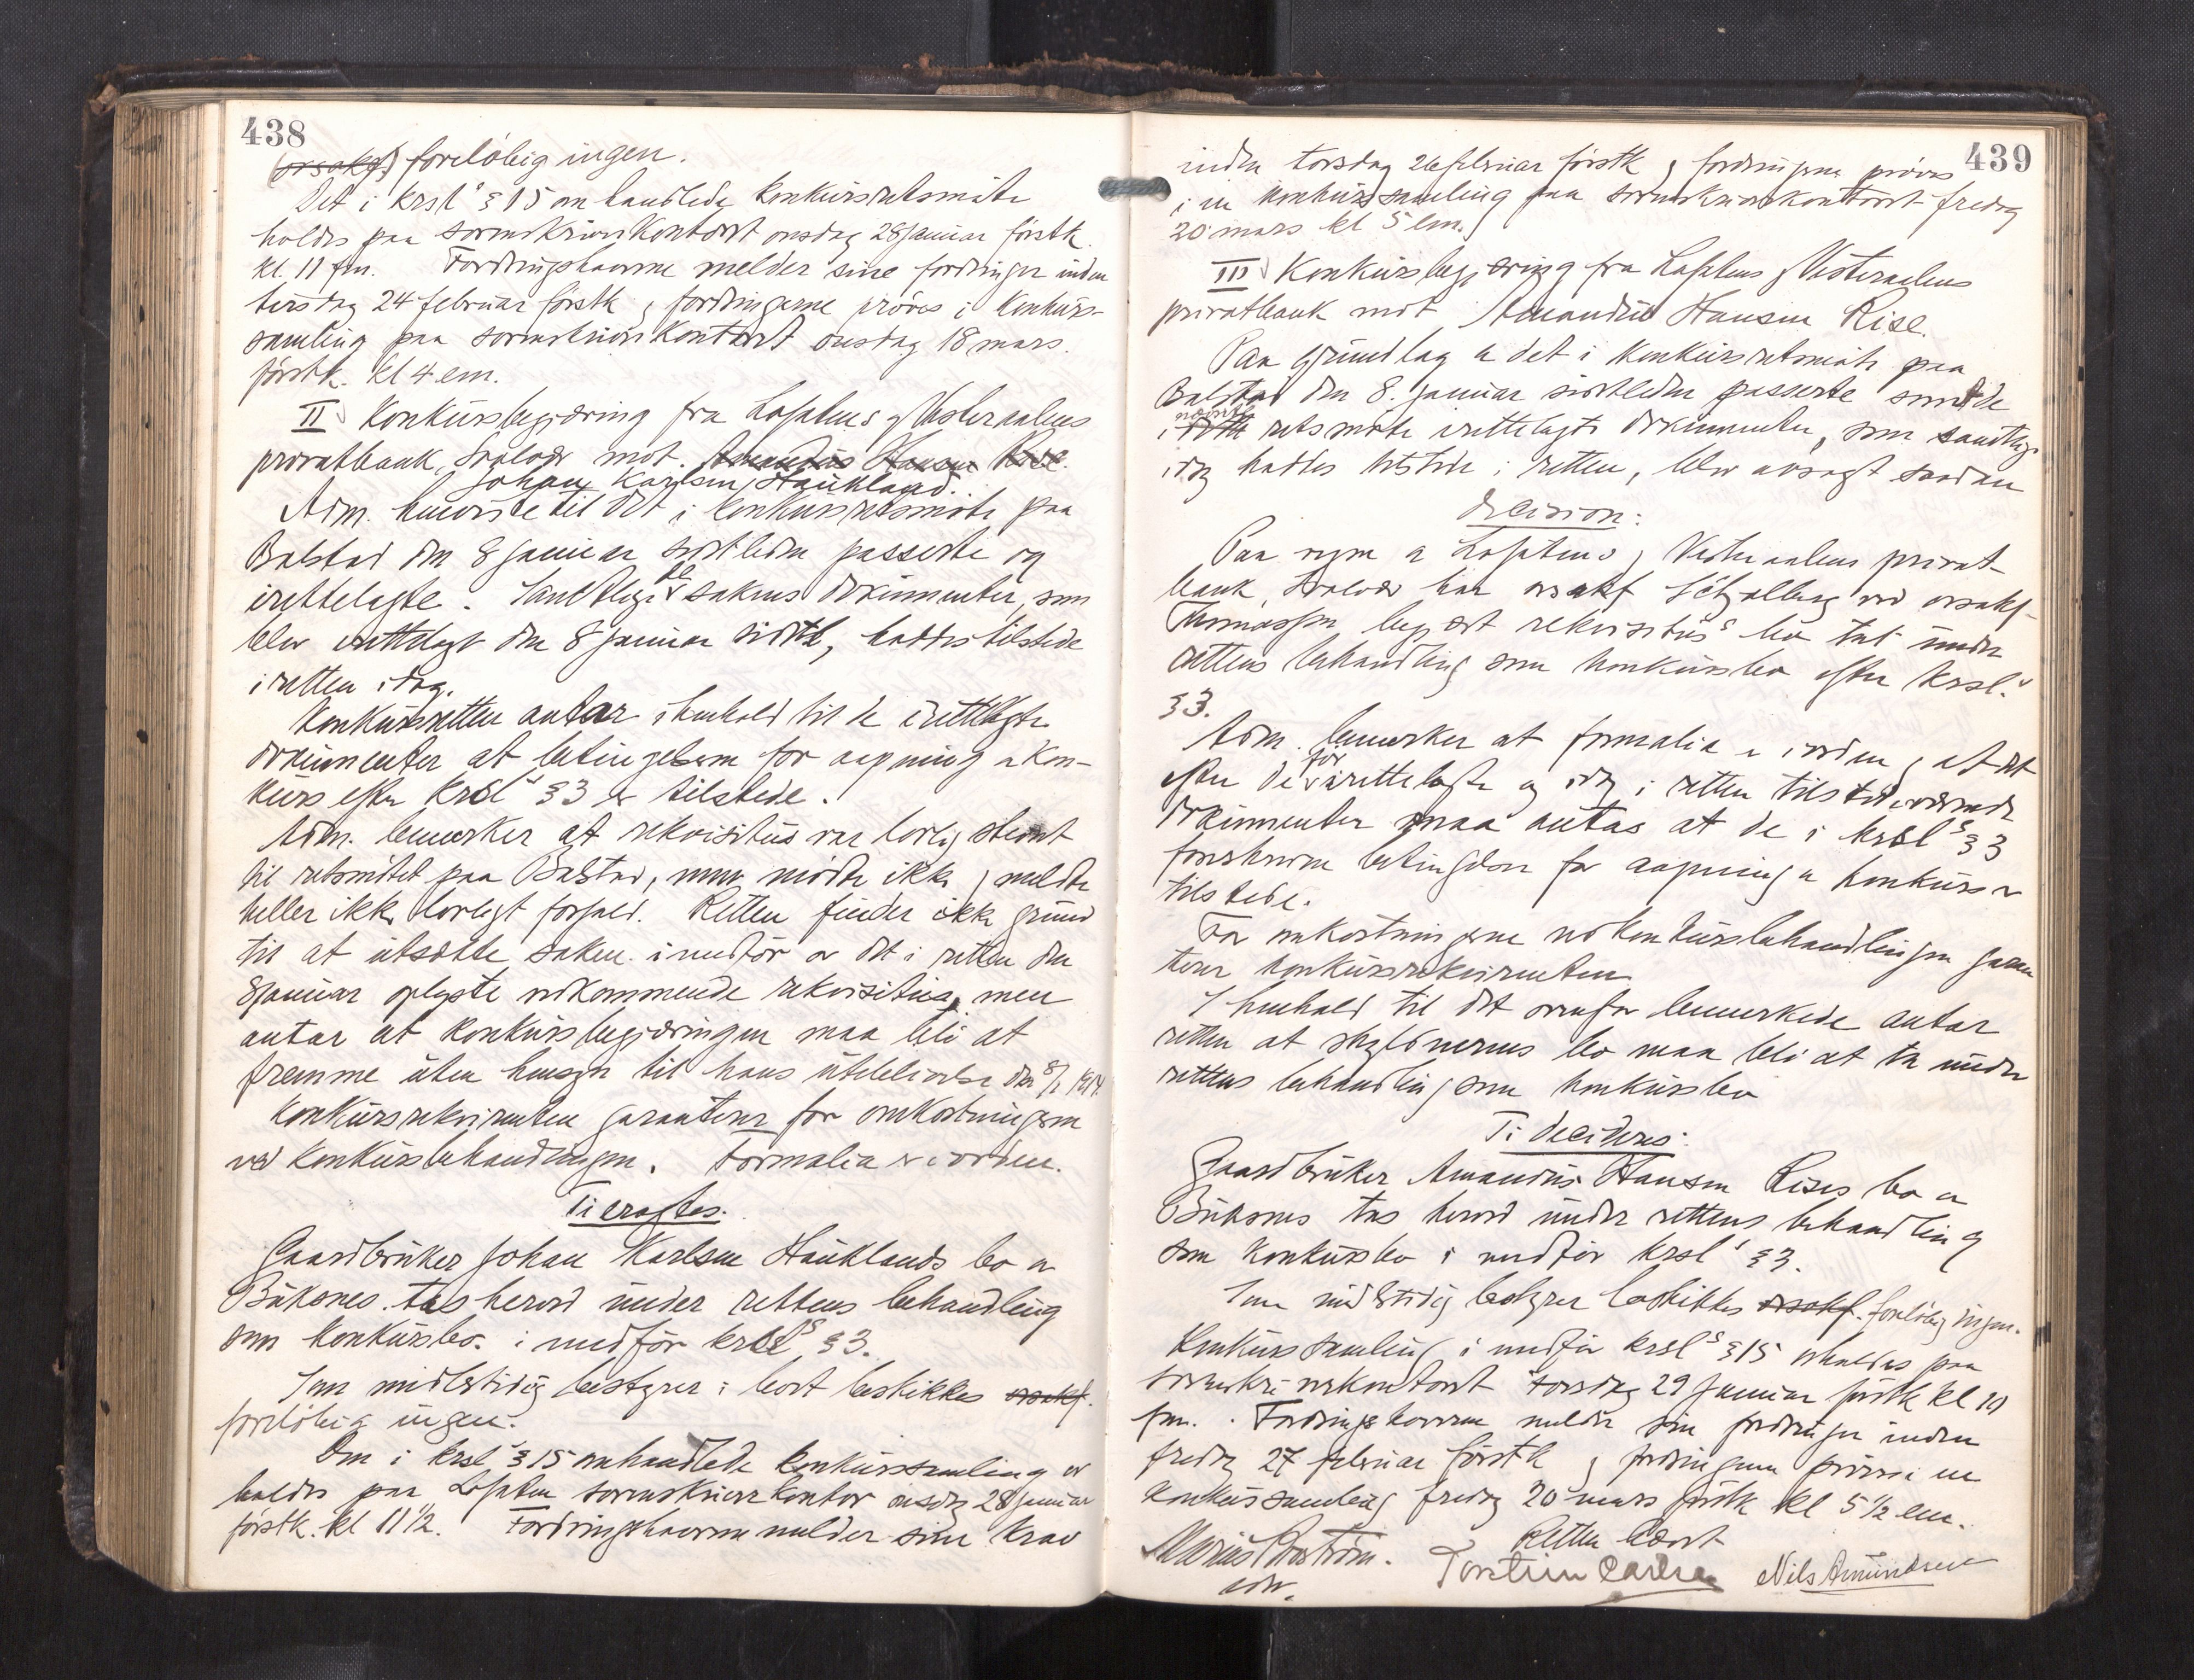 438
(orsakf.) foreløbig ingen.
Det i krsl's § 15 omhandlede konkursretsmøte
holdes paa sorenskriverkontoret onsdag 28 januar førstk.
kl. 11 fm. Fordringshaverne melder sine fordringer inden
tirsdag 24 februar førstk og fordringerne prøves i konkurs-
samling paa sorenskriverkontoret onsdag 18 mars
førstk. kl 4 em.
II Konkursbegjæring fra Lofotens og Vesteraalens
privatbank, Svolvær mot. Amandus Hansen Rise.
Johan Karlsen, Haukland.
Adm. henviste til det i konkursretsmøte paa
Balstad den 8 januar sistleden passerte og
irettelagte. Samtlige de sakens dokumenter, som
blev irettelagt den 8 januar sistl, hadtes tilstede
i retten idag.
Konkursretten antar i henhold til de irettelagte
dokumenter at betingelserne for aapning av kon-
kurs efter krsl's § 3 er tilstede.
Adm. bemerker at rekvisitus var lovlig stevnt
til retsmøtet paa Balstad, men møtte ikke og meldte
heller ikke lovlygt forfald. Retten finder ikke grund
til at utsætte saken i medfør av det i retten den
8 januar oplyste vedkommende rekvisitus, men
antar at konkursbegjæringen maa bli at
fremme uten hensyn til hans uteblivelse den 8/1 1914.
Konkursrekvirenten garanterer for omkostningerne
ved konkursbehandlingen. Formalia er i orden.
Ti eragtes:
Gaardbruker Johan Karlsen Hauklands bo av
Buksnes tas herved under rettens behandling
som konkursbo i medfør krsl's § 3.
Som midlertidig bestyrer i boet beskikkes orsakf.
foreløbig ingen.
Den i krsl's § 15 omhandlede konkurssamling er
holdes paa Lofoten sorenskriverkontor onsdag 28 januar
førstk. kl 11 1/2. Fordringshaverne melder sine krav
439
inden torsdag 26 februar førstk og fordringerne prøves
i en konkurssamling paa sorenskriverkontoret fredag
20 mars kl 5 em.
III Konkursbegjæring fra Lofotens og Vesteraalens
privatbank mot Amandus Hansen Rise.
Paa grundlag av det i konkursretsmøte paa
Balstad den 8. januar sistleden passerte samt de
nævnte
i dette retsmøte irettelagte dokumenter, som samtlige
idag hadtes tilstede i retten, blev avsagt saadan
decision:
Paa vegne av Lofotens og Vesteraalens privat-
bank, Svolvær har orsakf Schjelberg ved orsakf-
Thomassen begjært rekvisitus's bo tat under
rettens behandling som konkursbo efter krsl.'s
§ 3.
Adm. bemerker at formalia er i orden og at det
efter de før irettelagte og idag i retten tilstedeværende
dokumenter maa antas at de i krsl's § 3
foreskrevne betingelser for aapning av konkurs er
tilstede.
For omkostningerne ved konkursbehandlingen garan
terer konkursrekvirenten
I henhold til det ovenfor bemerkede antar
retten at skyldnerens bo maa bli at ta under
rettens behandling som konkursbo
Ti decideres:
Gaardbruker Amandus Hansen Rises bo av
Buksnes tas herved under rettens behandling
som konkursbo i medfør krsl's § 3.
Som midlertidig bestyrer beskikkes orsakf. foreløbig ingen.
Konkurssamling i medfør krsl's § 15 avholdes paa
sorenskriverkontoret torsdag 29 januar førstk kl 10
fm. Fordringshaverne melder sine fordringer inden
fredag 27 februar førstk og fordringerne prøves i en
konkurssamling fredag 20 mars førstk kl 5 1/2 em.
Retten hævet
Marius Torstein Carlsen Nils Amundsen
edv.